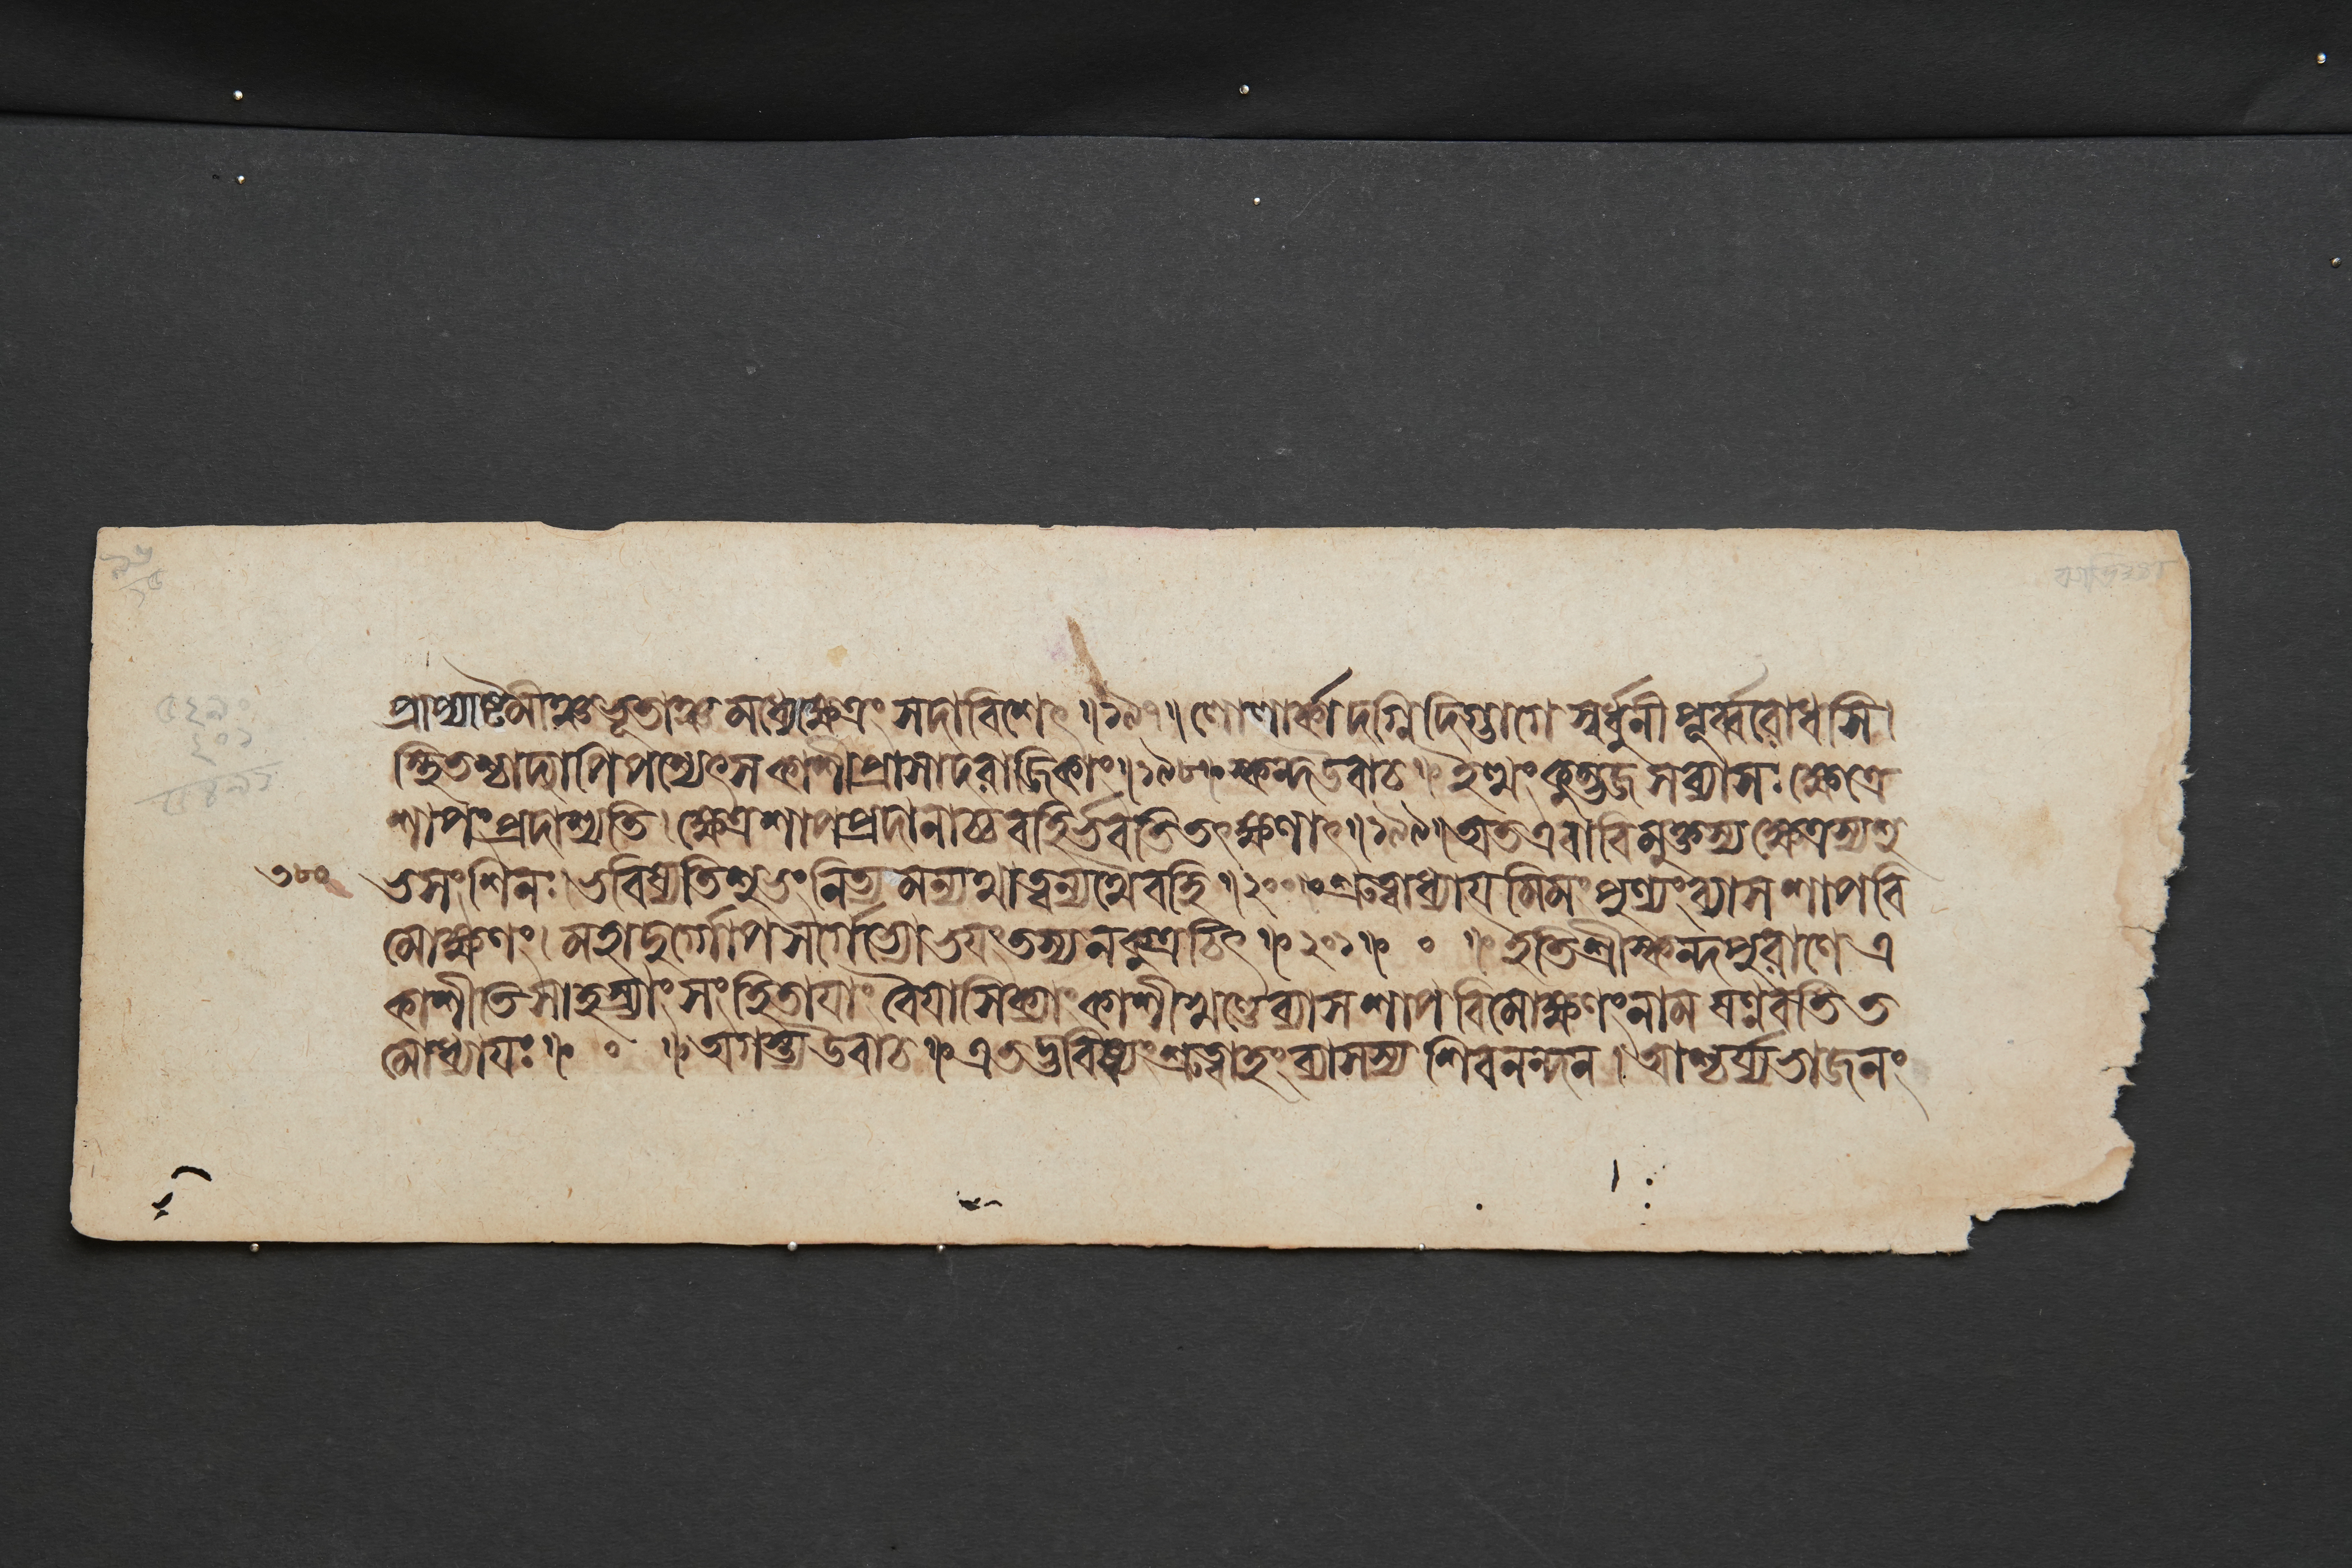 প্রাপ্যাষ্টমীঞ্চভূতাঞ্চমধ্যেক্ষেত্রংসদাবিশেৎ॥১৯৭॥লোলার্কাদগ্নিদিগ্ভাগেস্বর্ধুনীপূর্ব্বরোধসি।
স্থিতশ্চাদ্যাপিপশ্যেৎসকাশীপ্রাসাদরাজিকাং॥১৯৮॥স্কন্দউবাচ॥ইত্থংকুম্ভজসব্যাসঃক্ষেত্রে
শাপংপ্রদাস্যতি।ক্ষেত্রশাপপ্রদানাচ্চবহির্ভবতিতৎক্ষণাৎ॥১৯৯॥অতএবাবিমুক্তস্যক্ষেত্রস্যশু
৩৮০
ভসংশিনঃ।ভবিষ্যতিশুভংনিত্যমন্যথাত্বন্যথৈবহি॥২০০॥শ্রুত্বাধ্যাযমিমংপুণ্যংব্যাসশাপবি
মোক্ষণং।মহাদুর্গোপসর্গেভ্যোভযংতস্যনকুত্রচিৎ॥২০১॥০॥ইতিশ্রীস্কন্দপুরাণেএ
কাশীতিসাহস্র্যাংসংহিতাযাংবৈযাসিক্যাংকাশীখণ্ডেব্যাসশাপবিমোক্ষণংনামষণ্ণবতিত
মোধ্যাযঃ॥০॥অগস্ত্যউবাচ॥এতদ্ভবিষ্যংশ্রুত্বাহংব্যাসস্যশিবনন্দন।আশ্চর্য্যভাজনং